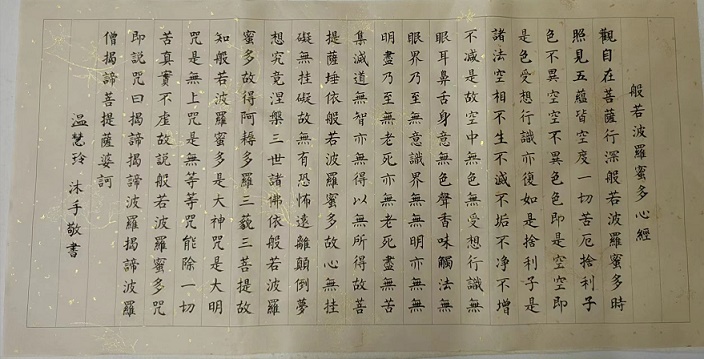 般若波羅蜜多心經
觀自在菩薩行深般若波羅蜜多時
照見五蘊皆空度一切苦厄捨利子
色不異空空不異色色即是空空即
是色受想行識亦復如是捨利子是
諸法空相不生不滅不垢不净不增
不減是故空中無色無受想行識無
眼耳鼻舌身意無色聲香味觸法無
眼界乃至無意識界無無明亦無無
明盡乃至無老死亦無老死盡無苦
集滅道無智亦無得以無所得故菩
提薩埵依般若波羅蜜多故心無挂
礙無挂礙故無有恐怖遠離顛倒夢
想究竟涅槃三世諸佛依般若波羅
蜜多故得阿耨多羅三藐三菩提故
知般若波羅蜜多是大神咒是大明
咒是無上咒是無等等咒能除一切
苦真實不虛故説般若波羅蜜多咒
即説咒曰揭諦揭諦波羅揭諦波羅
僧揭諦菩提薩婆訶
温慧玲 沐手敬書